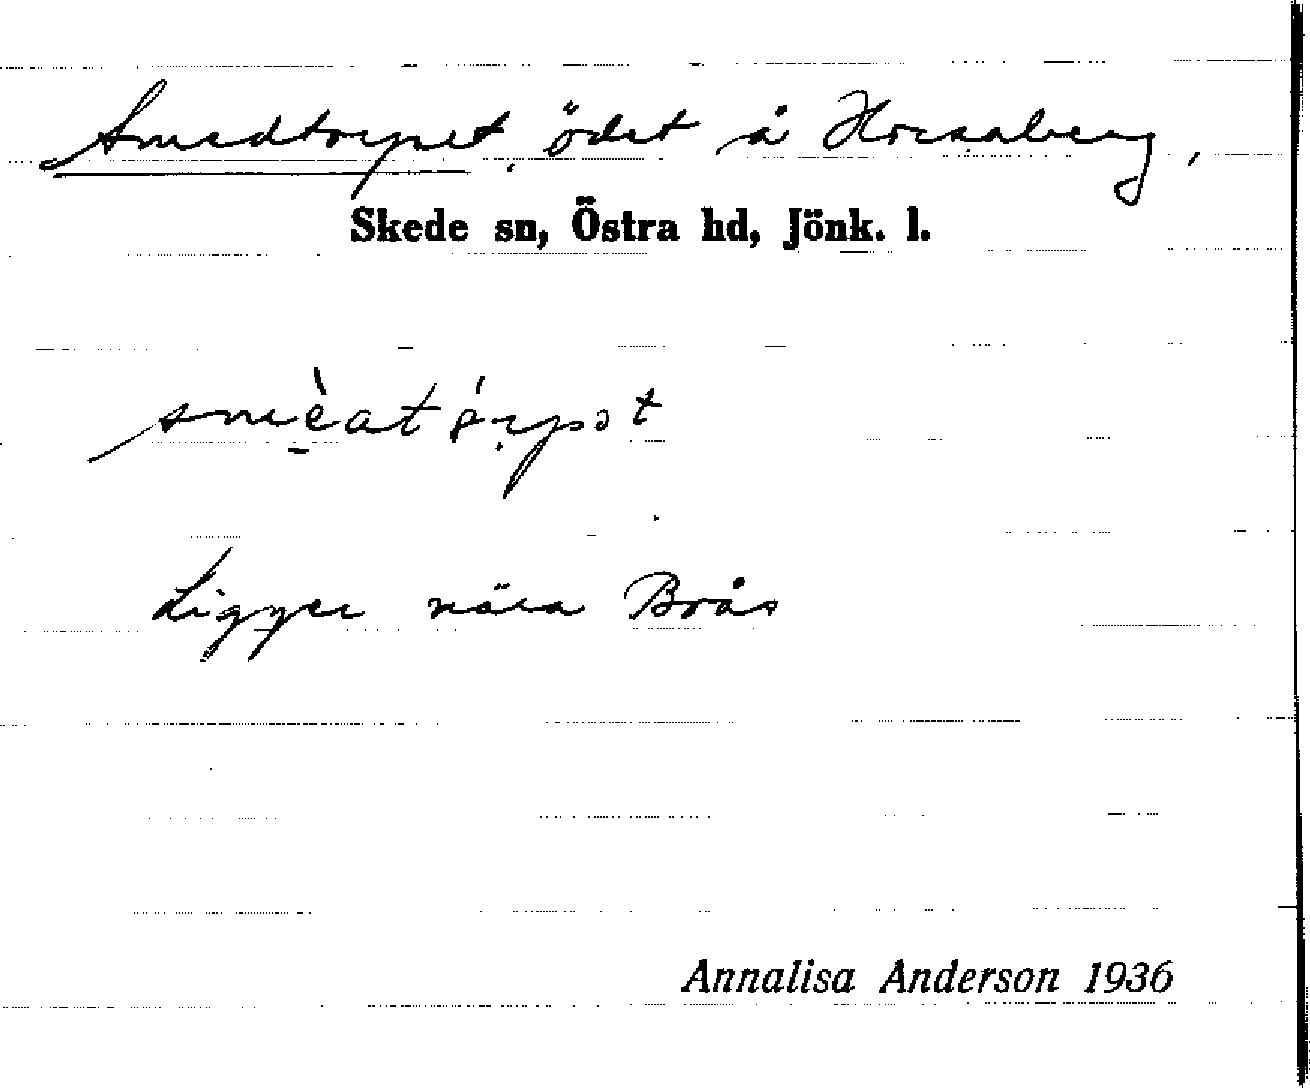 Smedtorpet, ödet å Horsaberg,
Skede sn, Östra hd, Jönk. l.
Ligger nära Brås
Annalisa Anderson 1936